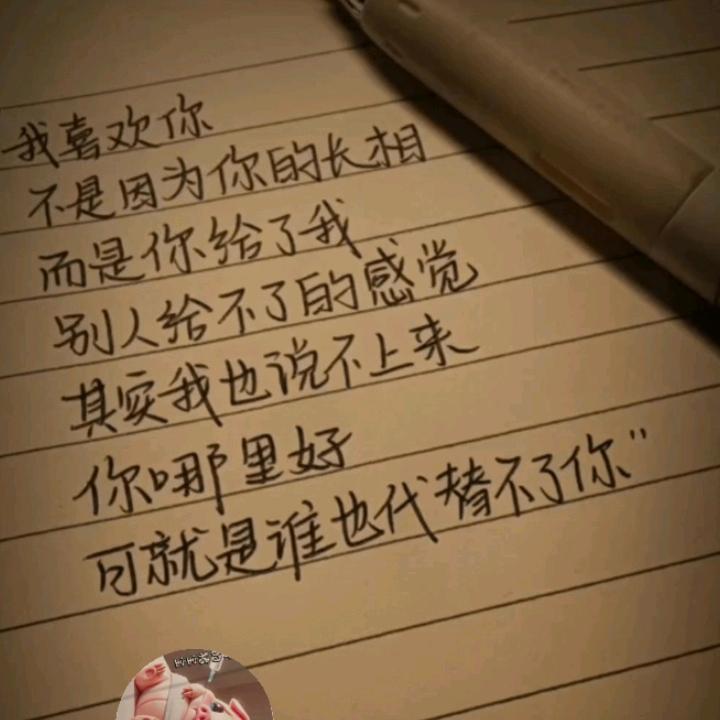 我喜欢你
不是因为你的长相
而是你给了我
别人给不了的感觉
其实我也说不上来
你哪里好
可就是谁也代替不了你"